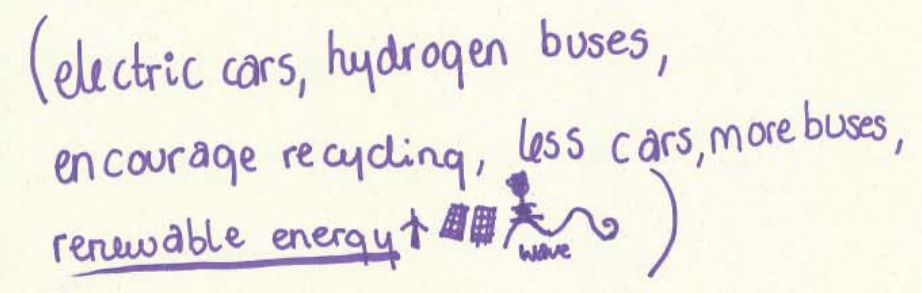 (electric cars, hydrogen buses,
encourage recycling, less cars, more buses,
renewable energy )
wave